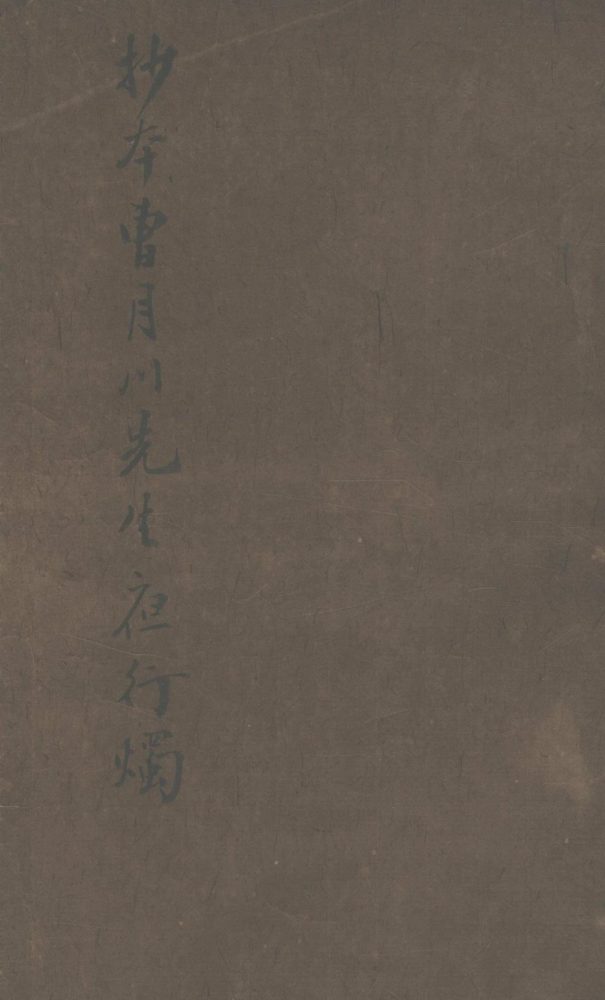 抄本曹月川先生夜行燭